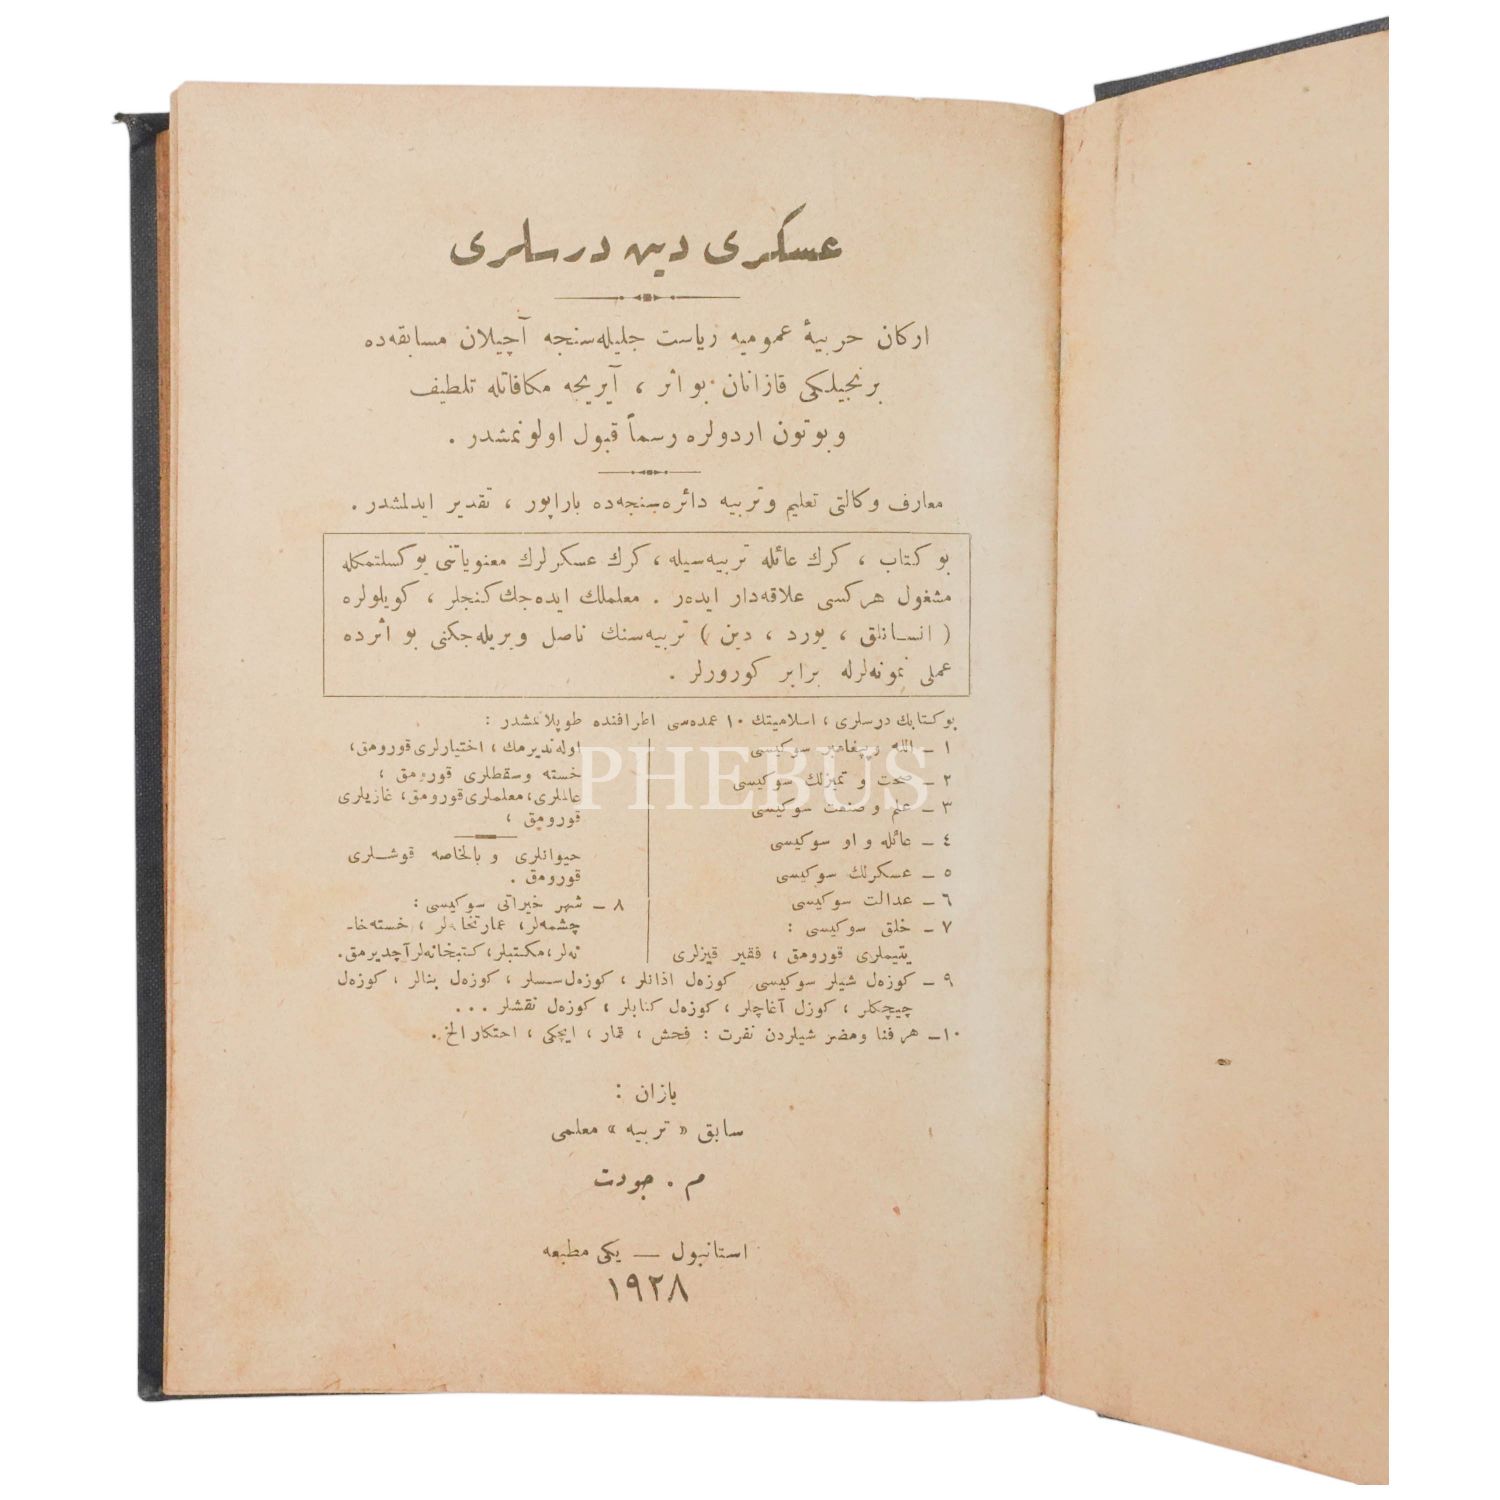 عسكرى دين درسلرى
اركان حربيۀ عموميه رياست جليله‌سنجه آچيلان مسابقه‌ده
برنجيلكى قازانان بو اثر ، آيريجه مكافاتله تلطيف
وبوتون اردولره رسماً قبول اولونمشدر .
معارف وكالتى تعليم وتربيه دائره‌سنجه‌ده باراپور ، تقدير ايدلمشدر .
بو كتاب ، كرك عائله تربيه‌سيله ، كرك عسكرلرك معنوياتنى يوكسلتمكله
مشغول هركسى علاقه‌دار ايده‌ر . معلملك ايده‌جك كنجلر ، كويلولره
( انسانلق ، يورد ، دين ) تربيه‌سنك ناصل ويريله‌جكنى بو اثرده
عملى نمونه‌لرله برابر كورورلر .
بوكتابك درسلرى ، اسلاميتك ١٠ عمده‌سى اطرافنده طوپلانمشدر :
١ ـ الله وپيغامبر سوكيسى
٢ ـ صحت و تميزلك سوكيسى
٣ ـ علم و صنعت سوكيسى
٤ ـ عائله و او سوكيسى
٥ ـ عسكرلك سوكيسى
٦ ـ عدالت سوكيسى
٧ ـ خلق سوكيسى :
يتيملرى قورومق ، فقير قيزلرى
اوله‌نديرمك ، اختيارلرى قورومق ،
خسته وسقطلرى قورومق ،
عالملرى ، معلملرى قورومق ، غازيلرى
قورومق ،
حيوانلرى و بالخاصه قوشلرى
قورومق .
٨ ـ شهر خيراتى سوكيسى :
چشمه‌لر ، عمارتخانه‌لر ، خسته‌خا-
نه‌لر ، مكتبلر ، كتبخانه‌لر آچديرمق .
٩ ـ كوزه‌ل شيلر سوكيسى كوزه‌ل اذانلر ، كوزه‌ل سسلر ، كوزه‌ل بنالر ، كوزه‌ل
چيچكلر ، كوزل آغاچلر ، كوزه‌ل كتابلر ، كوزه‌ل نقشلر ...
١٠ـ هر فنا ومضر شيلردن نفرت : فحش ، قمار ، ايچكى ، احتكار الخ .
يازان :
سابق « تربيه » معلمى
م . جودت
استانبول — يكى مطبعه
١٩٢٨
PHEBUS